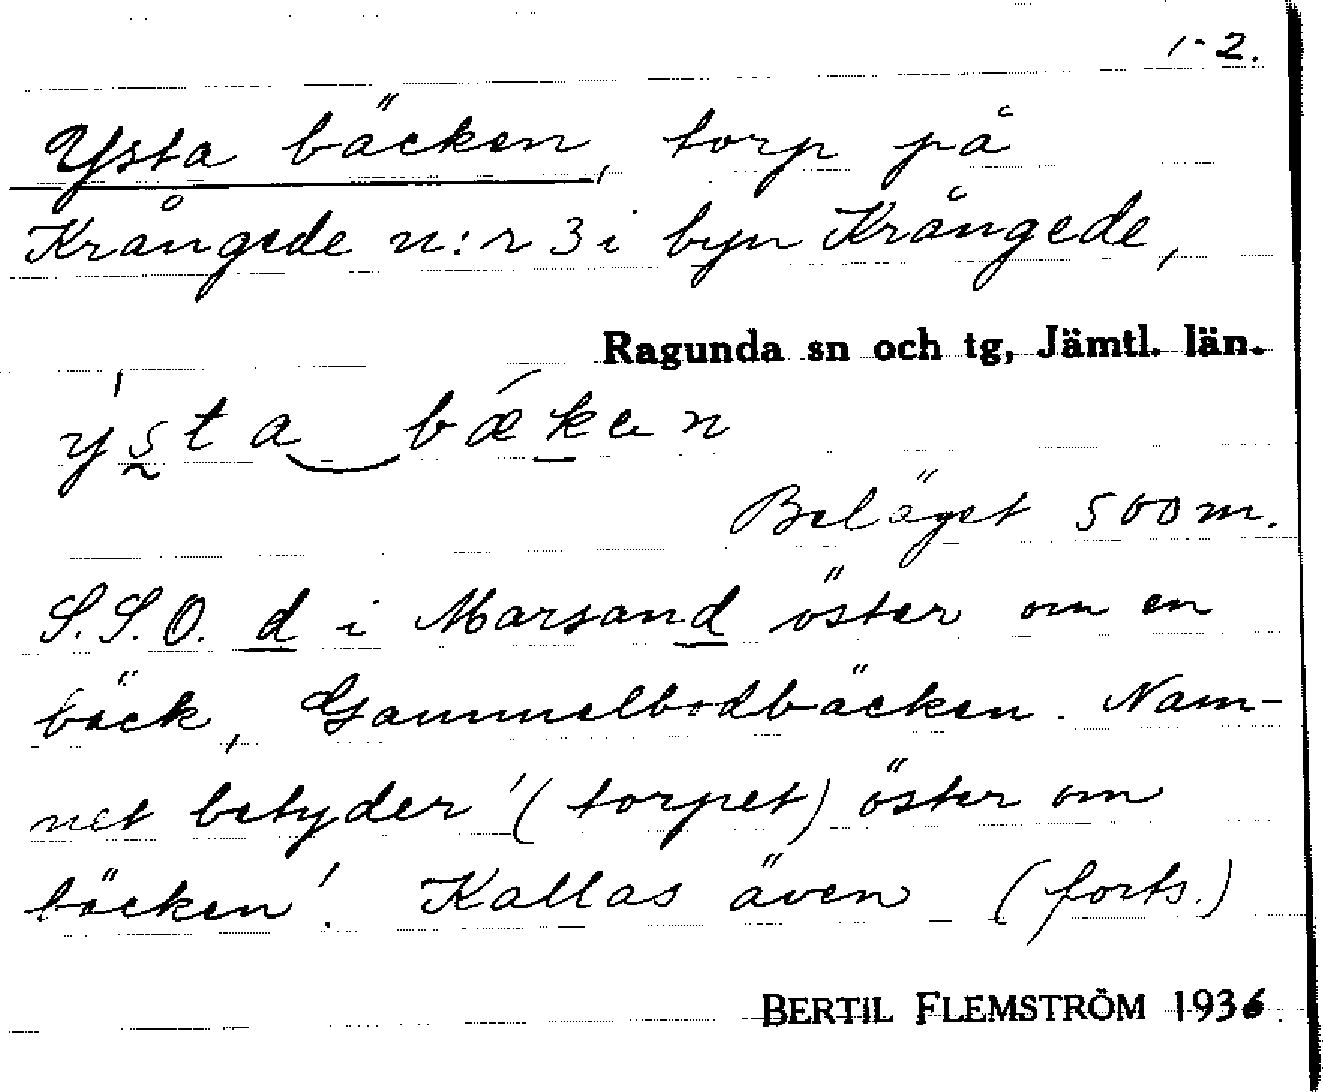 1-2.
Ysta bäcken, torp på
Krångede n:r 3 i byn Krångede,
Ragunda sn och tg, Jämtl. län.
ýsta bǽkan
Beläget 500 m.
S.S.O. d i Marsand öster om en
bäck, Gammelbodbäcken. Nam-
net betyder '(torpet) öster om
bäcken'. Kallas även (forts.)
BERTIL FLEMSTRÖM 1936.